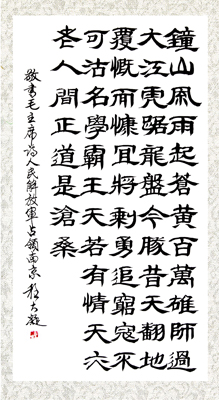 鐘山風雨起蒼黃百萬雄師過
大江虎踞龍盤今勝昔天翻地
覆慨而慷宜將剩勇追窮寇不
可沽名學霸王天若有情天亦
老人間正道是滄桑
敬書毛主席為人民解放軍占領南京